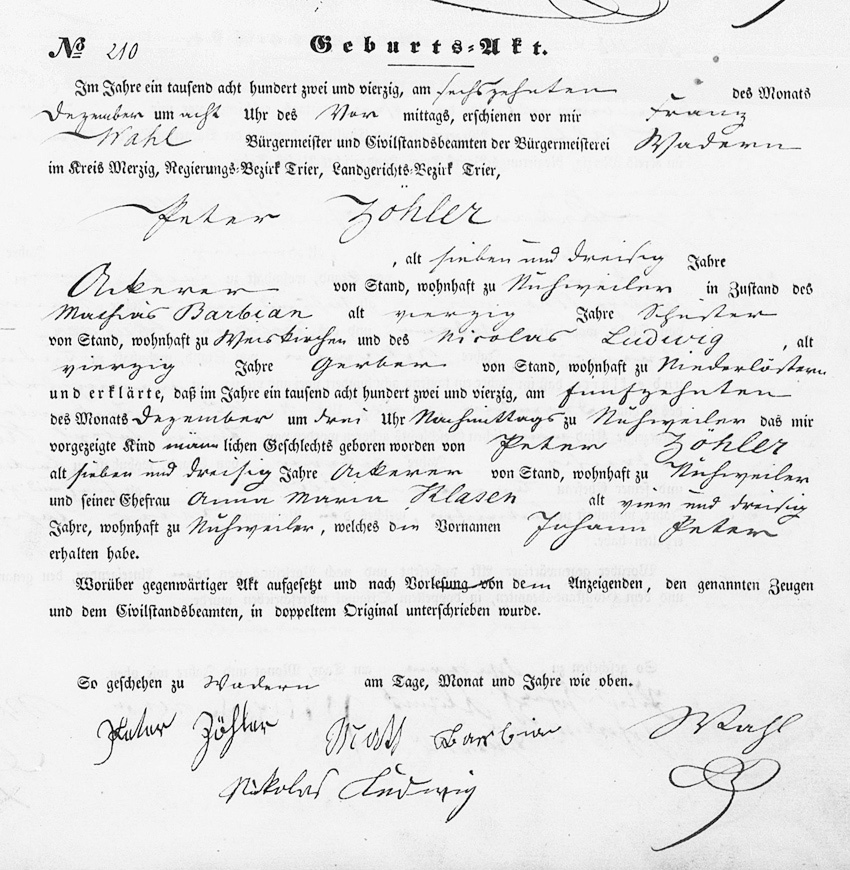 № 210 Geburts-Akt.
Im Jahre ein tausend acht hundert zwei und vierzig, am sechszehnten des Monats
Dezember um acht Uhr des Vor mittags, erschienen vor mir Franz
Wahl Bürgermeister und Civilstandsbeamten der Bürgermeisterei Wadern
im Kreis Merzig, Regierungs-Bezirk Trier, Landgerichts-Bezirk Trier,
Peter Zöhler
, alt sieben und dreisig Jahre
Ackerer von Stand, wohnhaft zu Nuhweiler in Zustand des
Mathias Barbian alt vierzig Jahre Schuster
von Stand, wohnhaft zu Weiskirchen und des Nicolas Ludwig , alt
vierzig Jahre Gerber von Stand, wohnhaft zu Niederlöstern
und erklärte, daß im Jahre ein tausend acht hundert zwei und vierzig, am fünfzehnten
des Monats Dezember um drei Uhr Nachmittags zu Nuhweiler das mir
vorgezeigte Kind männ lichen Geschlechts geboren worden von Peter Zöhler
alt sieben und dreisig Jahre Ackerer von Stand, wohnhaft zu Nuhweiler
und seiner Ehefrau Anna Maria Klasen alt vier und dreisig
Jahre, wohnhaft zu Nuhweiler, welches die Vornamen Johann Peter
erhalten habe.
Worüber gegenwärtiger Akt aufgesetzt und nach Vorlesung von de Anzeigenden, den genannten Zeugen
und dem Civilstandsbeamten, in doppeltem Original unterschrieben wurde.
So geschehen zu Wadern am Tage, Monat und Jahre wie oben.
Peter Zöhler Math Barbian Wahl
Nikolas Ludwig